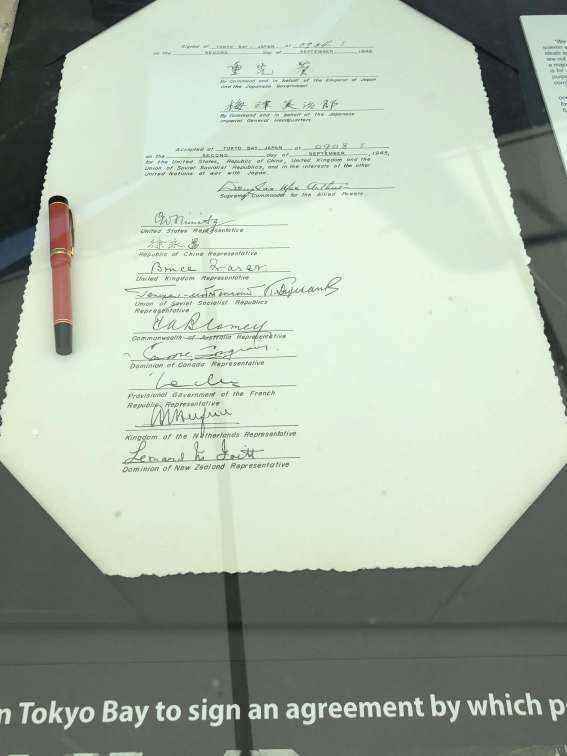 Signed at TOKYO BAY, JAPAN at 0904 I
on the SECOND day of SEPTEMBER, 1945.
重光葵
By Command and in behalf of the Emperor of Japan
and the Japanese Government.
梅津美治郎
By Command and in behalf of the Japanese
Imperial General Headquarters.
Accepted at TOKYO BAY, JAPAN at 0908 I
on the SECOND day of SEPTEMBER, 1945,
for the United States, Republic of China, United Kingdom and the
Union of Soviet Socialist Republics, and in the interests of the other
United Nations at war with Japan.
Douglas MacArthur
Supreme Commander for the Allied Powers.
C.W. Nimitz
United States Representative
徐永昌
Republic of China Representative
Bruce Fraser
United Kingdom Representative
Union of Soviet Socialist Republics
Representative
T.A. Blamey
Commonwealth of Australia Representative
Dominion of Canada Representative
Provisional Government of the French
Republic Representative
Kingdom of the Netherlands Representative
Leonard M. Isitt
Dominion of New Zealand Representative
n Tokyo Bay to sign an agreement by which p